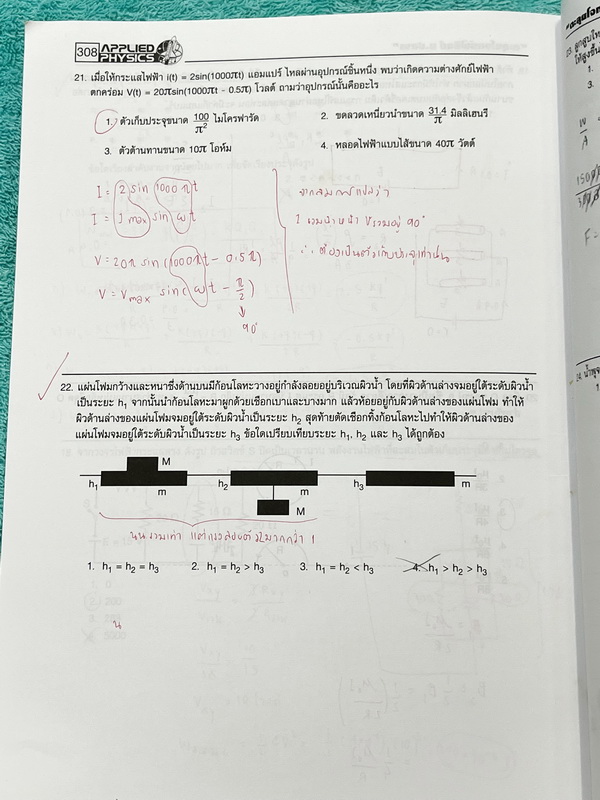 308 APPLIED PHYSICS
21. เมื่อให้กระแสไฟฟ้า i(t) = 2sin(1000πt) แอมแปร์ ไหลผ่านอุปกรณ์ชิ้นหนึ่ง พบว่าเกิดความต่างศักย์ไฟฟ้า
ตกคร่อม V(t) = 20πsin(1000πt - 0.5π) โวลต์ ถามว่าอุปกรณ์นั้นคืออะไร
1. ตัวเก็บประจุขนาด 100/π² ไมโครฟารัด 2. ขดลวดเหนี่ยวนำขนาด 31.4/π มิลลิเฮนรี
3. ตัวต้านทานขนาด 10π โอห์ม 4. หลอดไฟฟ้าแบบไส้ขนาด 40π วัตต์
I = 2 sin 1000πt
I = Imax sin ωt
V = 20π sin(1000πt - 0.5π)
V = Vmax sin(ωt - π/2)
90°
I รวมนำหน้า Vรวมอยู่ 90°
∴ ต้องเป็นตัวเก็บประจุเท่านั้น
22. แผ่นโฟมกว้างและหนาซึ่งด้านบนมีก้อนโลหะวางอยู่กำลังลอยอยู่บริเวณผิวน้ำ โดยที่ผิวด้านล่างจมอยู่ใต้ระดับผิวน้ำ
เป็นระยะ h₁ จากนั้นนำก้อนโลหะมาผูกด้วยเชือกเบาและบางมาก แล้วห้อยอยู่กับผิวด้านล่างของแผ่นโฟม ทำให้
ผิวด้านล่างของแผ่นโฟมจมอยู่ใต้ระดับผิวน้ำเป็นระยะ h₂ สุดท้ายตัดเชือกทิ้งก้อนโลหะไปทำให้ผิวด้านล่างของ
แผ่นโฟมจมอยู่ใต้ระดับผิวน้ำเป็นระยะ h₃ ข้อใดเปรียบเทียบระยะ h₁, h₂ และ h₃ ได้ถูกต้อง
M
h₁ m h₂ m h₃ m
M
1. h₁ = h₂ = h₃ 2. h₁ = h₂ > h₃ 3. h₁ = h₂ < h₃ 4. h₁ > h₂ > h₃